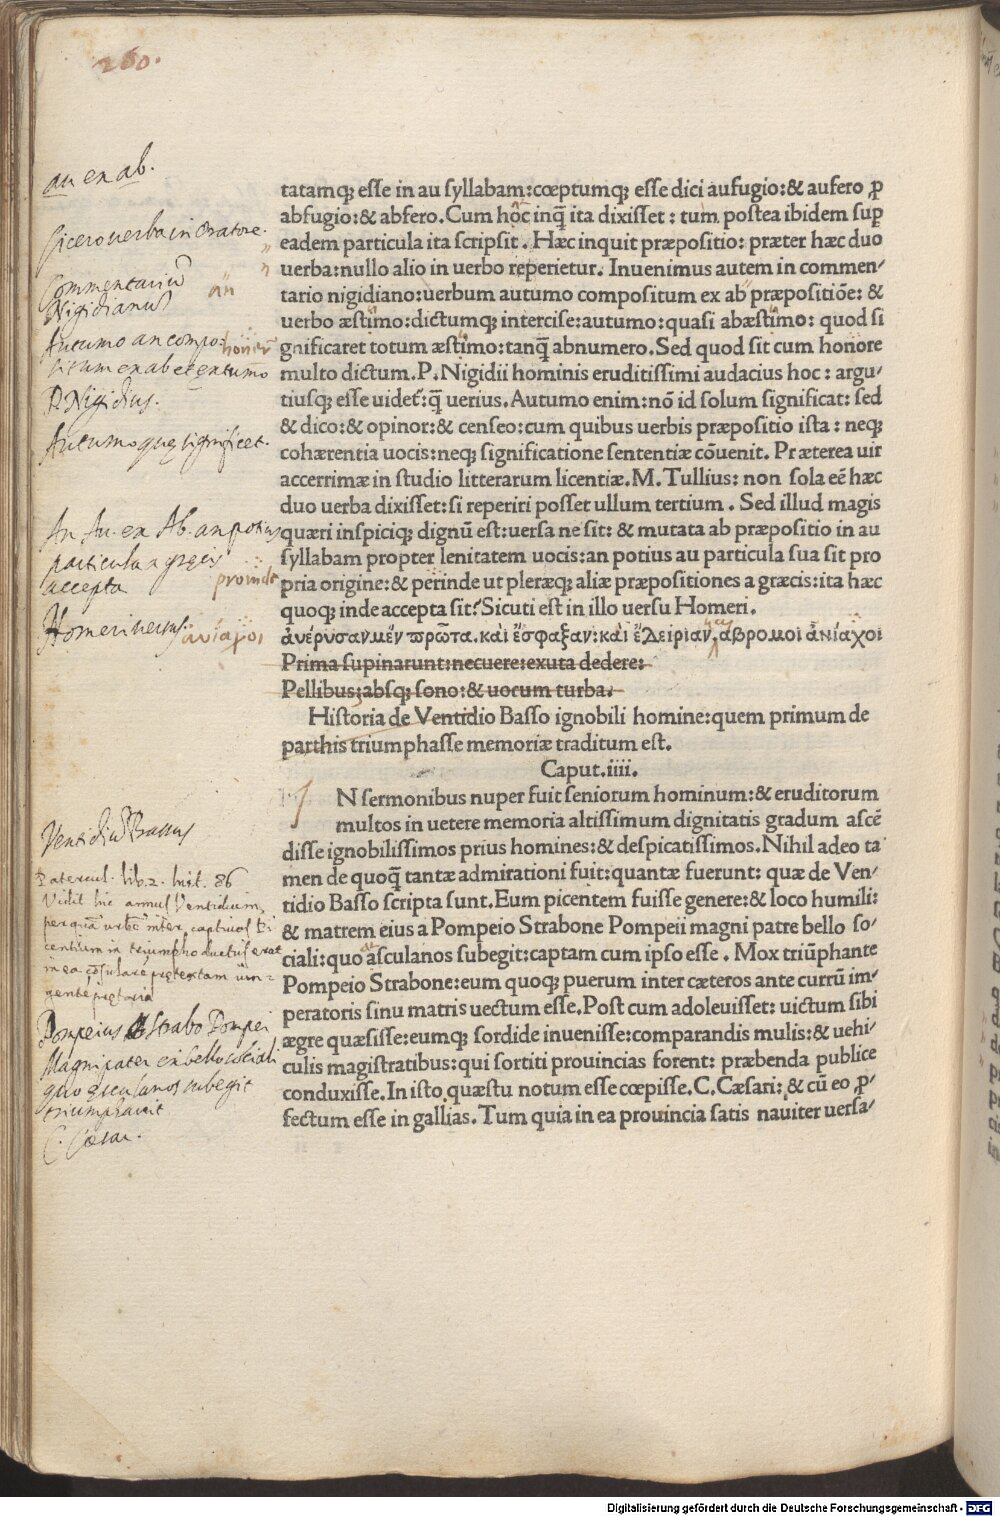 260.
au ex ab.
Cicero uerba in Oratore.
Commentariũ
Nigidianus
an
Autumo an compo:
situm ex ab et extumo
honeʳ
P. Nigidius.
Autumo quę significet.
An Au. ex Ab. an potius
particula a gręcis
accepta
proinde
Homeri uersus.
αυΐαχοι
Ventidiꝰ Bassus
Patercul. lib. 2. hist. 86
Vidit hic annus Ventidium
per quã urbẽ inter captiuos Pi
centium in triumpho ductus erat
in ea cõsulare prętextam
Pompeius Strabo Pompei
Magni pater ex bello sociali
quo asculanos subegit
triumphauit
C. Cæsar.
tatamqꝫ esse in au syllabam:cœptumqꝫ esse dici aufugio:& aufero ꝓ
abfugio:& abfero.Cum hoc inqͥt ita dixisset: tum postea ibidem suꝑ
eadem particula ita scripsit. Hæc inquit præpositio: præter hæc duo
uerba:nullo alio in uerbo reperietur. Inuenimus autem in commen⸗
tario nigidiano:uerbum autumo compositum ex ab præpositiõe: &
uerbo æstimo:dictumqꝫ intercise:autumo:quasi abæstimo: quod si
gnificaret totum æstimo:tanq̃ abnumero. Sed quod sit cum honore
multo dictum.P.Nigidii hominis eruditissimi audacius hoc: argu⸗
tiusqꝫ esse uidet᷑:q̃ uerius.Autumo enim:nõ id solum significat: sed
& dico:& opinor:& censeo:cum quibus uerbis præpositio ista: neqꝫ
cohærentia uocis:neqꝫ significatione sententiæ cõuenit. Præterea uir
accerrimæ in studio litterarum licentiæ.M.Tullius: non sola eẽ hæc
duo uerba dixisset:si reperiri posset ullum tertium. Sed illud magis
quæri inspiciqꝫ dignũ est:uersa ne sit: & mutata ab præpositio in au
syllabam propter lenitatem uocis:an potius au particula sua sit pro
pria origine:& perinde ut pleræqꝫ aliæ præpositiones a græcis:ita hæc
quoqꝫ inde accepta sit?Sicuti est in illo uersu Homeri.
ἀυέρυσαν μέν πρῶτα. κἀὶ ἔσφαξαν: κἀὶ ἔδειριαν. αβρομοἰ ἀνίαχοι
Prima supinarunt:necuere:exuta dedere:
Pellibus:absqꝫ sono:& uocum turba.
Historia de Ventidio Basso ignobili homine:quem primum de
parthis triumphasse memoriæ traditum est.
Caput.iiii.
I N sermonibus nuper fuit seniorum hominum:& eruditorum
multos in uetere memoria altissimum dignitatis gradum ascẽ
disse ignobilissimos prius homines:& despicatissimos.Nihil adeo ta
men de quoq̃ tantæ admirationi fuit:quantæ fuerunt: quæ de Ven⸗
tidio Basso scripta sunt.Eum picentem fuisse genere:& loco humili:
& matrem eius a Pompeio Strabone Pompeii magni patre bello so⸗
ciali:quo asculanos subegit:captam cum ipso esse. Mox triũphante
Pompeio Strabone:eum quoqꝫ puerum inter cæteros ante currũ im⸗
peratoris sinu matris uectum esse.Post cum adoleuisset: uictum sibi
ægre quæsisse:eumqꝫ sordide inuenisse:comparandis mulis:& uehi⸗
culis magistratibus:qui sortiti prouincias forent: præbenda publice
conduxisse.In isto quæstu notum esse cœpisse.C.Cæsari: & cũ eo ꝓ⸗
fectum esse in gallias. Tum quia in ea prouincia satis nauiter uersa⸗
Digitalisierung gefördert durch die Deutsche Forschungsgemeinschaft - DFG